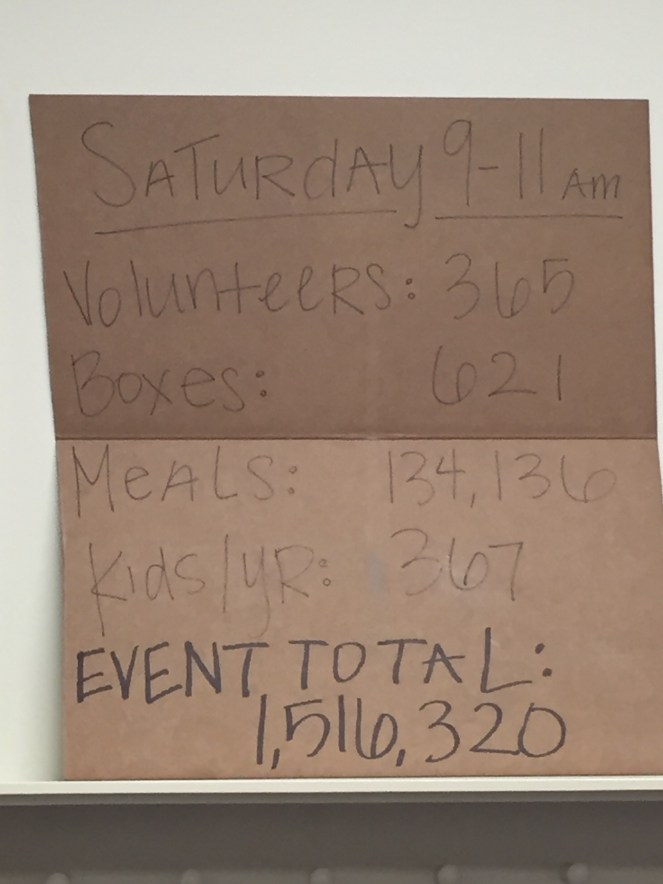 SATURdAy 9-11 Am
VolunteeRS: 365
Boxes: 621
MeALS: 134,136
Kids/yR: 367
EVENT TOTAL:
1,516,320